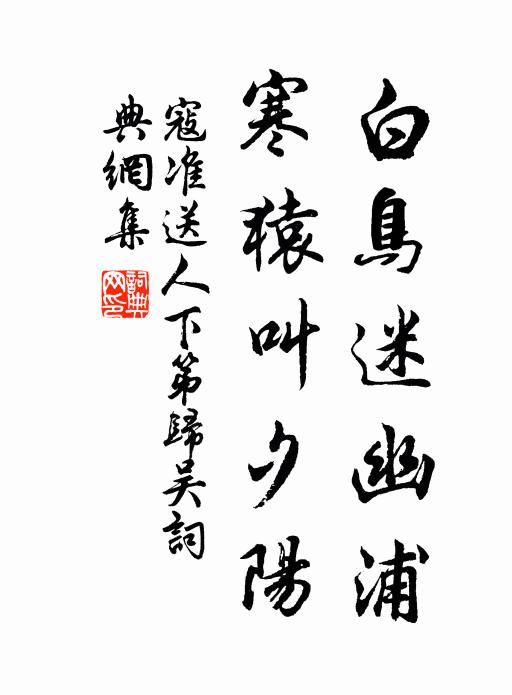 白鳥迷幽浦
寒猿叫夕陽
寇准送人下第歸吴詞
典網集
詞典网印